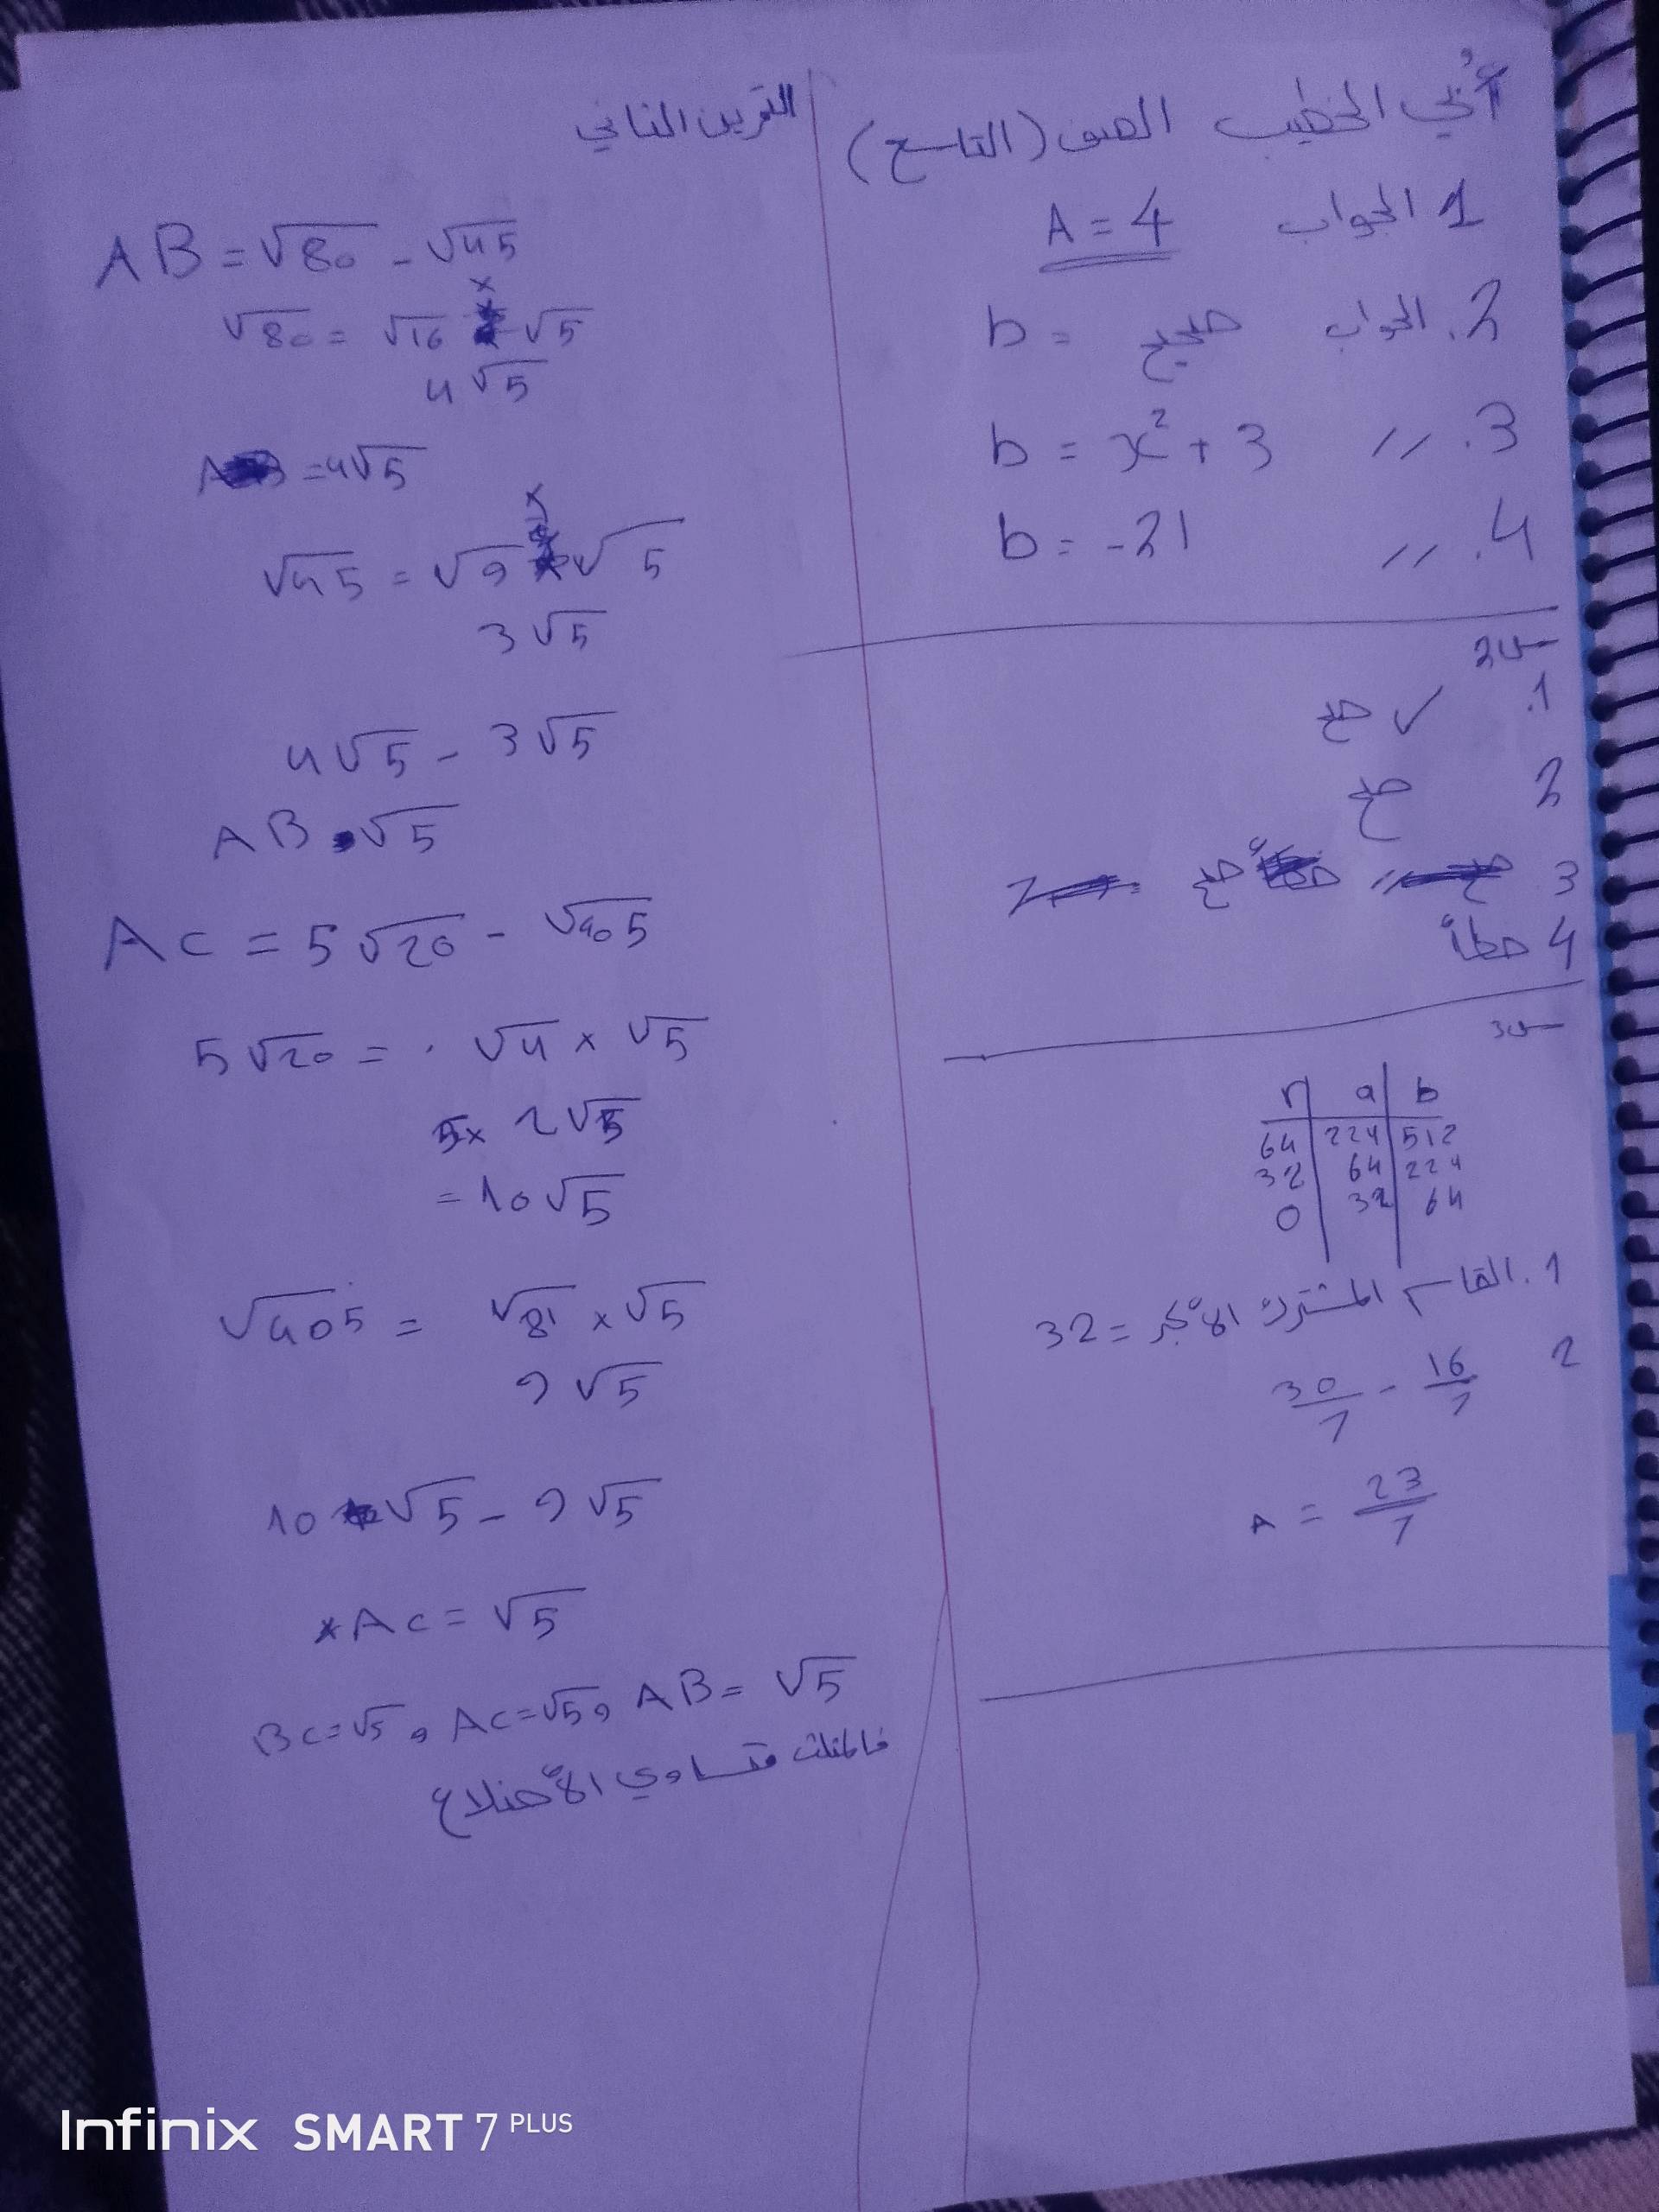 أُبي الخطيب الصف (التاسع)
1 الجواب A = 4
2. الجواب صحيح b =
3. // b = x² + 3
4. // b = -21
س2
1. ✓ صح
2 صح
3 صح
4 خطأ
س3
r a b
64 224 512
32 64 224
0 32 64
1. القاسم المشترك الأكبر = 32
2 30/7 - 16/7
A = 23/7
التمرين الثاني
AB = √80 - √45
√80 = √16 × √5
4√5
= 4√5
√45 = √9 × √5
3√5
4√5 - 3√5
AB √5
AC = 5√20 - √405
5√20 = . √4 × √5
5× 2√5
= 10√5
√405 = √81 × √5
9√5
10 √5 - 9√5
*AC = √5
BC = √5 , AC = √5 , AB = √5
فالمثلث متساوي الأضلاع
Infinix SMART 7 PLUS